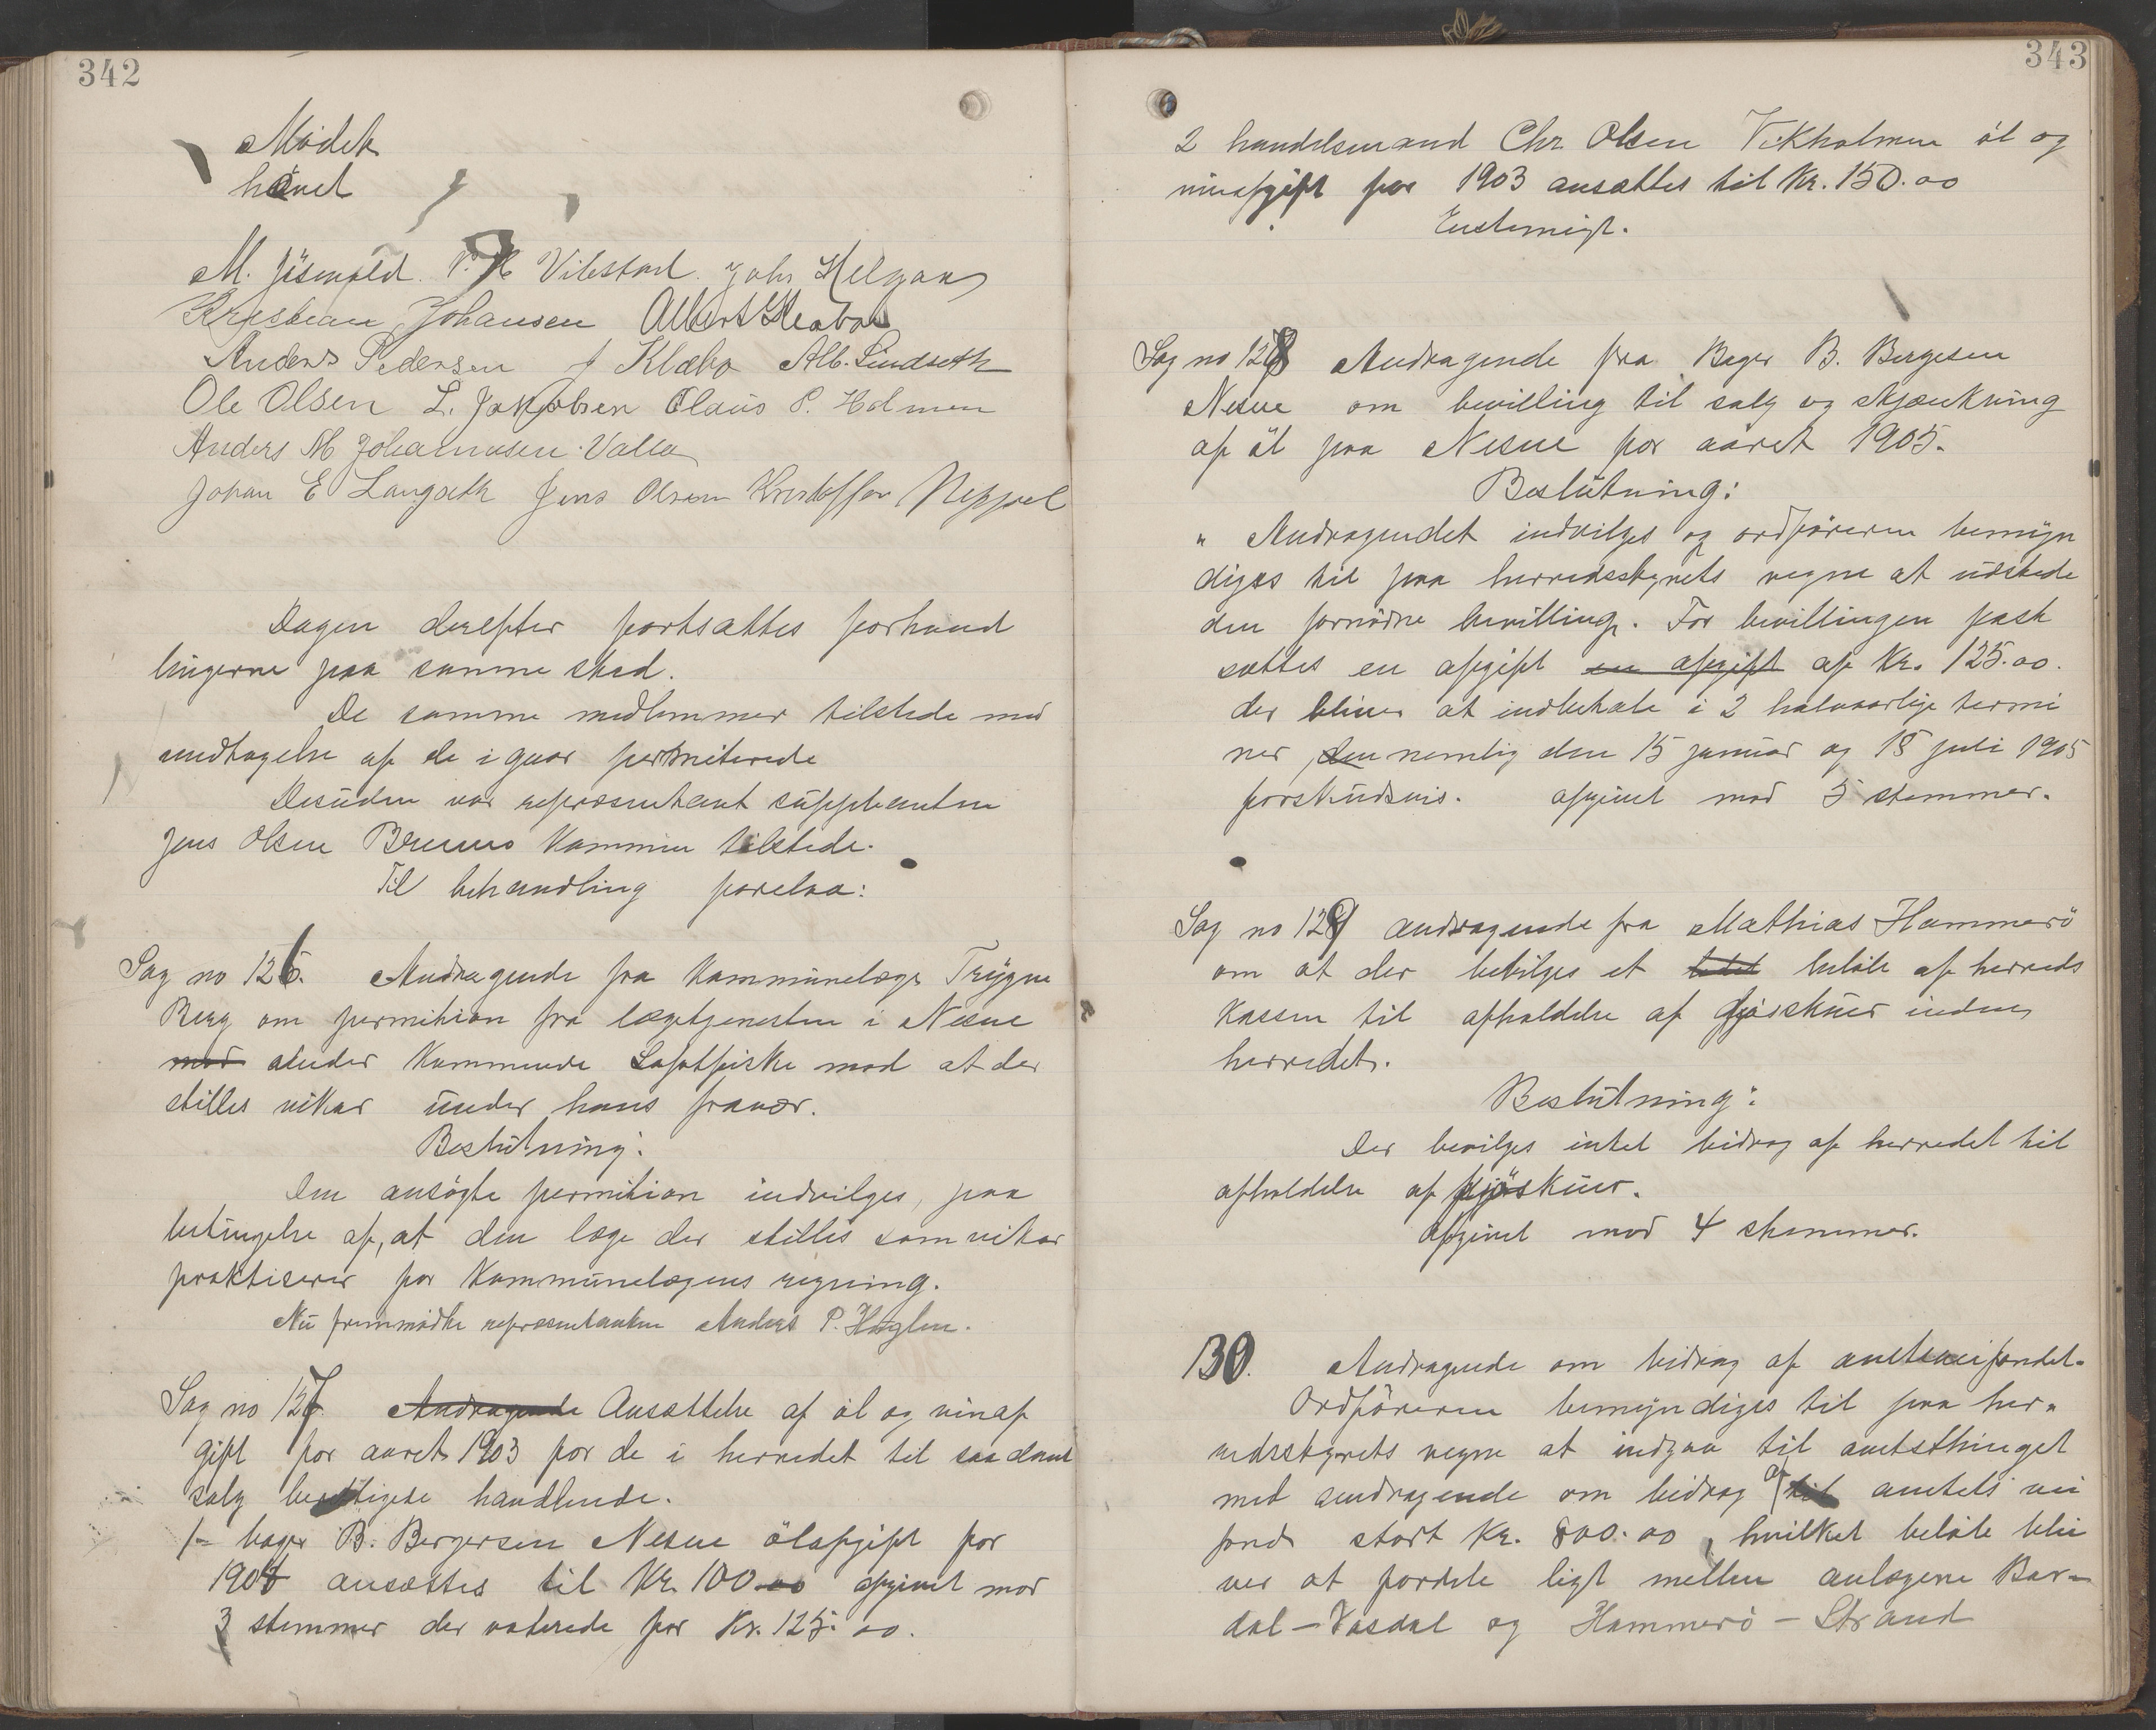 342
Mødet
hævet
M. Jösevold. P. M Vibstad. Johs Helgaas
Kristian Johansen Albert Kleabo
Anders Pedersen J Klæbo Alb. Lindseth
Ole Olsen L. Jakobsen Claus P. Holmen
Anders M Johannesen Valla
Johan E Langseth Jens Olsen Kristoffer Neppel
Dagen derefter fortsattes forhand
lingerne paa samme sted.
De samme medlemmer tilstede med
undtagelse af de igaar permiterede
Desuden var repræsentant supplianten
Jens Olsen Kommen tilstede.
Til behandling forelaa:
Sag no 126. Andragende fra Kommunelæge Trygve
Berg om permition fra lægetjenesten i Nesne
med under Kommende Lofotfiske mod at der
stilles vikar under hans fravær.
Beslutning:
Den ansøgte permition indvilges, paa
betingelse af, at den læge der stilles som vikar
praktiserer for Kommunelægens regning.
Nu fremmødte repræsentanten Anders P. Haglen.
Sag no 127. Andragende Ansættelse af øl og vinaf
gift for aaret 1903 for de i herredet til saadant
salg berettigede handlende.
1- bager B. Bergersen Nesne ølafgift for
1904 ansættes til Kr. 100.00 afgivet mod
3 stemmer der voterede for Kr. 125.00.
343
2 handelsmand Chr Olsen Vikholmen øl og
vinafgift for 1903 ansættes til Kr. 150.00
Enstemigt.
Sag no 128 Andragende fra Bager B. Bergesen
Nesne om bevilling til salg og skjænkning
af øl paa Nesne for aaret 1905.
Beslutning:
" Andragendet indvilges og ordføreren bemyn
diges til paa herredsstyrets vegne at udstede
den fornødne bevilling. For bevillingen fast
sættes en afgift en afgift af Kr. 125.00.
der bliver at indbetale i 2 halvaarlige termi
ner den nemlig den 15 januar og 15 juli 1905
forskudsvis. afgivet mod 5 stemmer.
Sag no 129 andragende fra Mathias Hammerö
om at der bevilges et beløb af herreds
kassen til afholdelse af fjøsskuer inden
herredet.
Beslutning:
Der bevilges intet bidrag af herredet til
afholdelse af fjøskuer.
Afgivet mod 4 stemmer.
130. Andragende om bidrag af amtsveifondet.
Ordføreren bemyndiges til paa her-
redsstyrets vegne at indgaa til amtsthinget
med andragende om bidrag af til amtets vei
fond stort Kr. 800.00, hvilket beløb bli
ver at fordele ligt mellem anlægene Bar-
dal - Vasdal og Hammerö - Strand